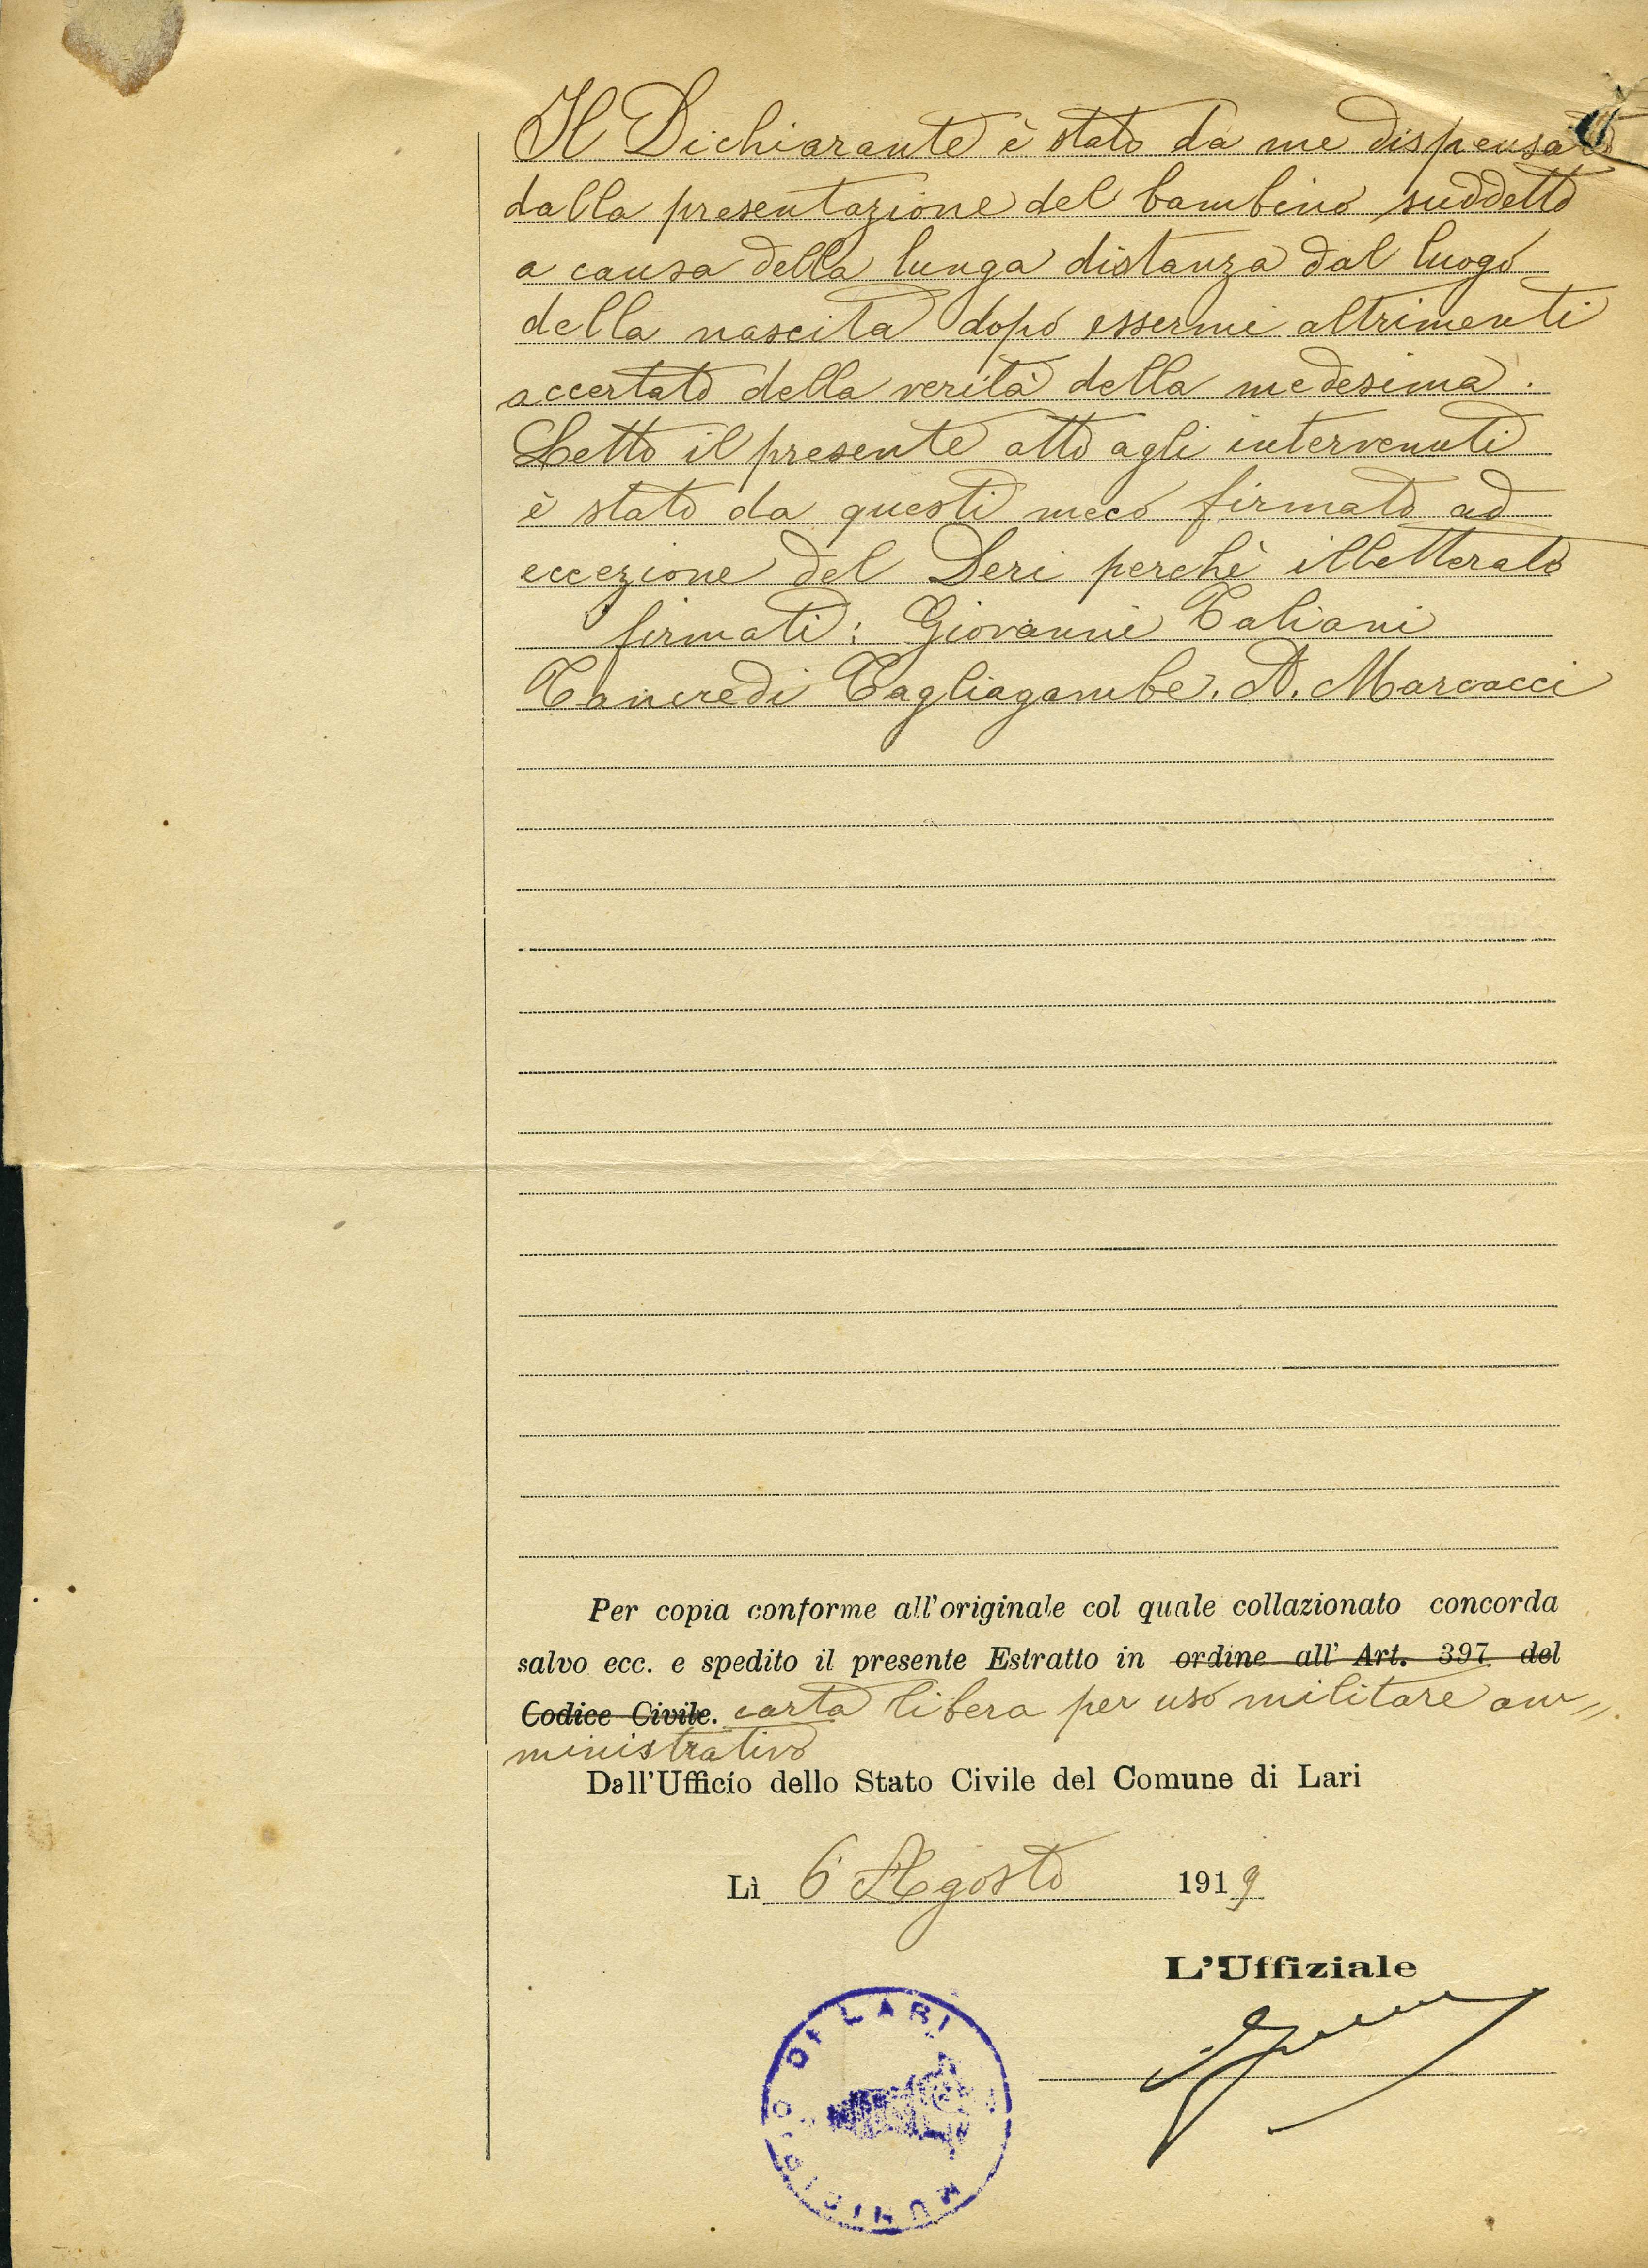 Il Dichiarante è stato da me dispensato
dalla presentazione del bambino suddetto
a causa della lunga distanza dal luogo
della nascita dopo essermi altrimenti
accertato della verità della medesima.
Letto il presente atto agli intervenuti
è stato da questi meco firmato ad
eccezione del Deri perchè illetterato
firmati: Giovanni Taliani
Tancredi Tagliagambe. D. Marcacci
Per copia conforme all'originale col quale collazionato concorda
salvo ecc. e spedito il presente Estratto in ordine all' Art. 397 del
Codice Civile. carta libera per uso militare am=
ministrativo
Dall'Ufficio dello Stato Civile del Comune di Lari
Lì 6 Agosto 1919
L'Uffiziale
MUNICIPIO DI LARI